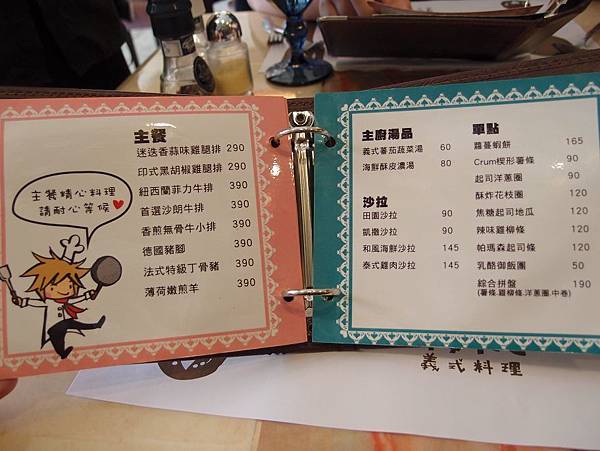 主餐
迷迭香蒜味雞腿排 290
印式黑胡椒雞腿排 290
紐西蘭菲力牛排 390
首選沙朗牛排 390
香煎無骨牛小排 390
德國豬腳 390
法式特級丁骨豬 390
薄荷嫩煎羊 390
主餐精心料理
請耐心等候
主廚湯品
義式蕃茄蔬菜湯 60
海鮮酥皮濃湯 80
沙拉
田園沙拉 90
凱撒沙拉 90
和風海鮮沙拉 145
泰式雞肉沙拉 145
單點
蘿蔓蝦餅 165
Crum楔形薯條 90
起司洋蔥圈 90
酥炸花枝圈 120
焦糖起司地瓜 120
辣味雞柳條 120
帕瑪森起司條 120
乳酪御飯團 50
綜合拼盤 190
(薯條.雞柳條.洋蔥圈.中卷)
義式料理